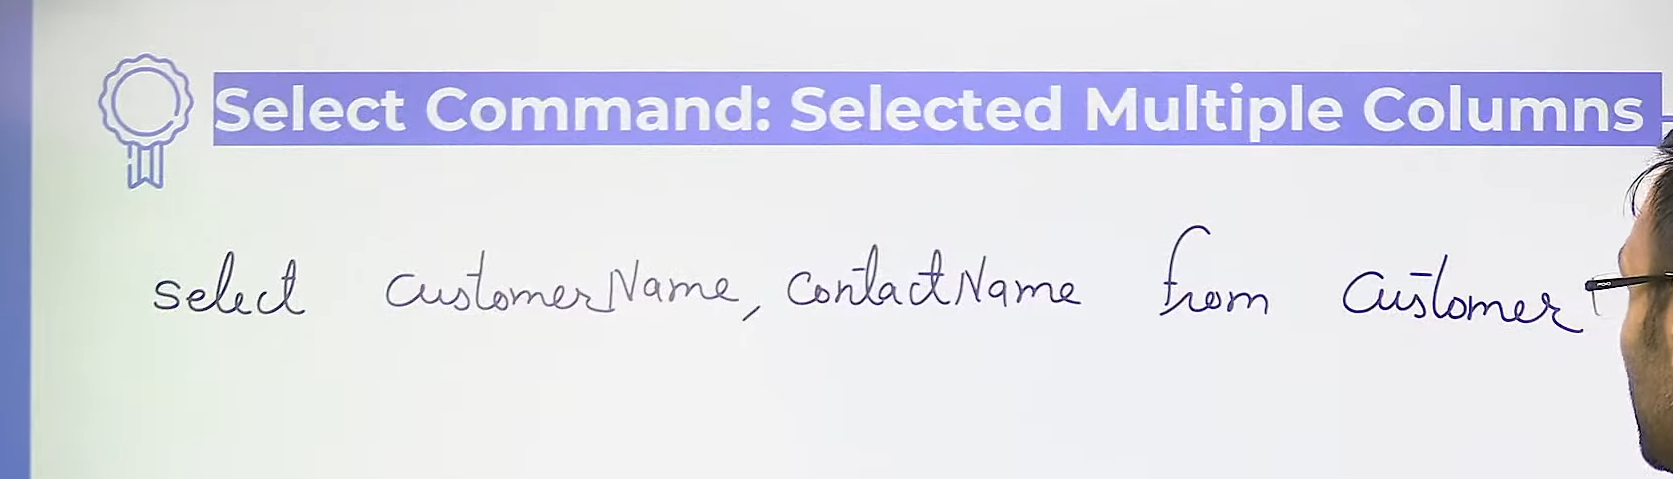 Select Command: Selected Multiple Columns
select CustomerName, ContactName from Customer